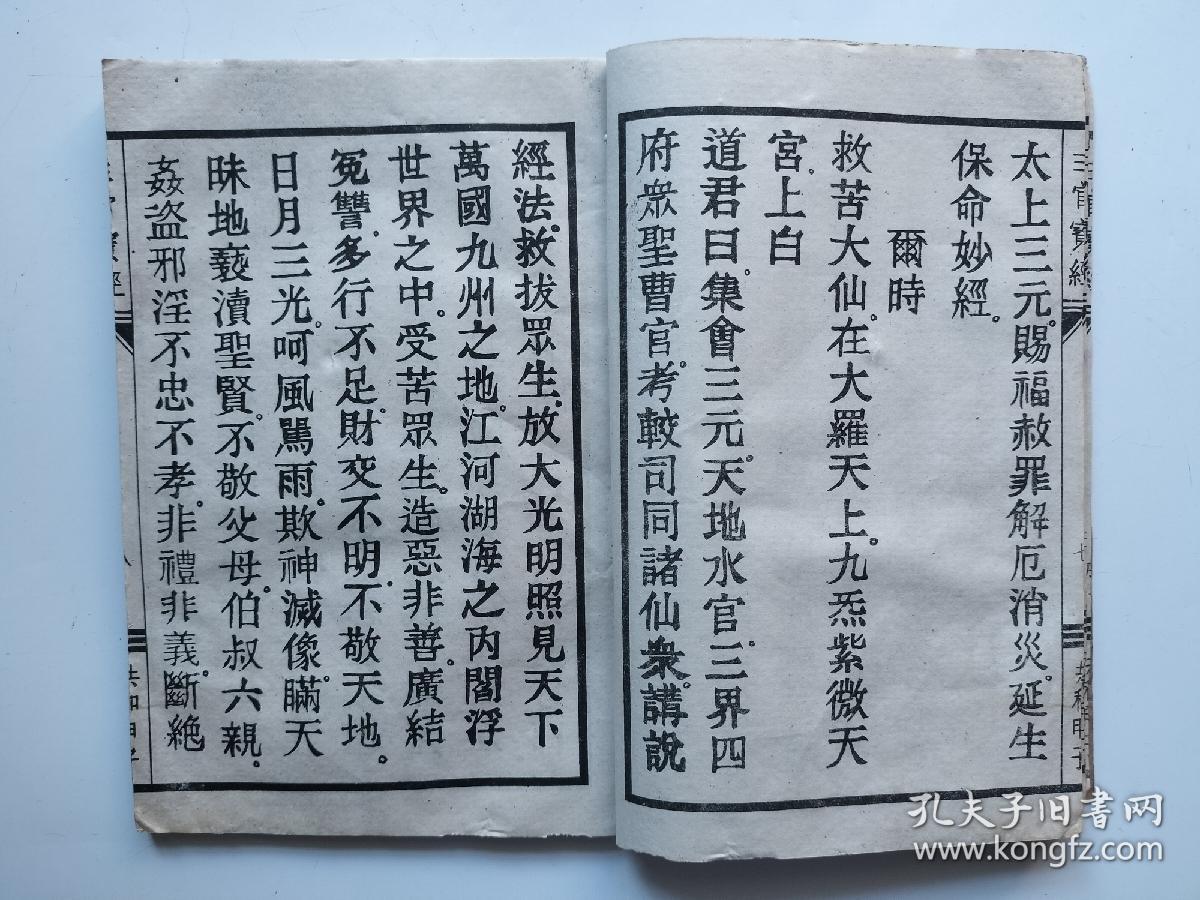 太上三元。賜福赦罪解厄消災。延生
保命妙經。
爾時
救苦大仙。在大羅天上。九炁紫微天
宮。上白
道君曰。集會三元。天地水官。三界四
府眾聖曹官。考較司同諸仙眾。講說
經法。救拔眾生。放大光明照見天下
萬國九州之地。江河湖海之內閻浮
世界之中。受苦眾生。造惡非善。廣結
冤讐。多行不足。財交不明。不敬天地。
日月三光。呵風罵雨。欺神滅像。瞞天
昧地。褻瀆聖賢。不敬父母。伯叔六親。
姦盜邪淫。不忠不孝。非禮非義。斷絶
三官寶經
共和甲子
寶經
八
共和甲子
孔夫子旧书网
www.kongfz.com